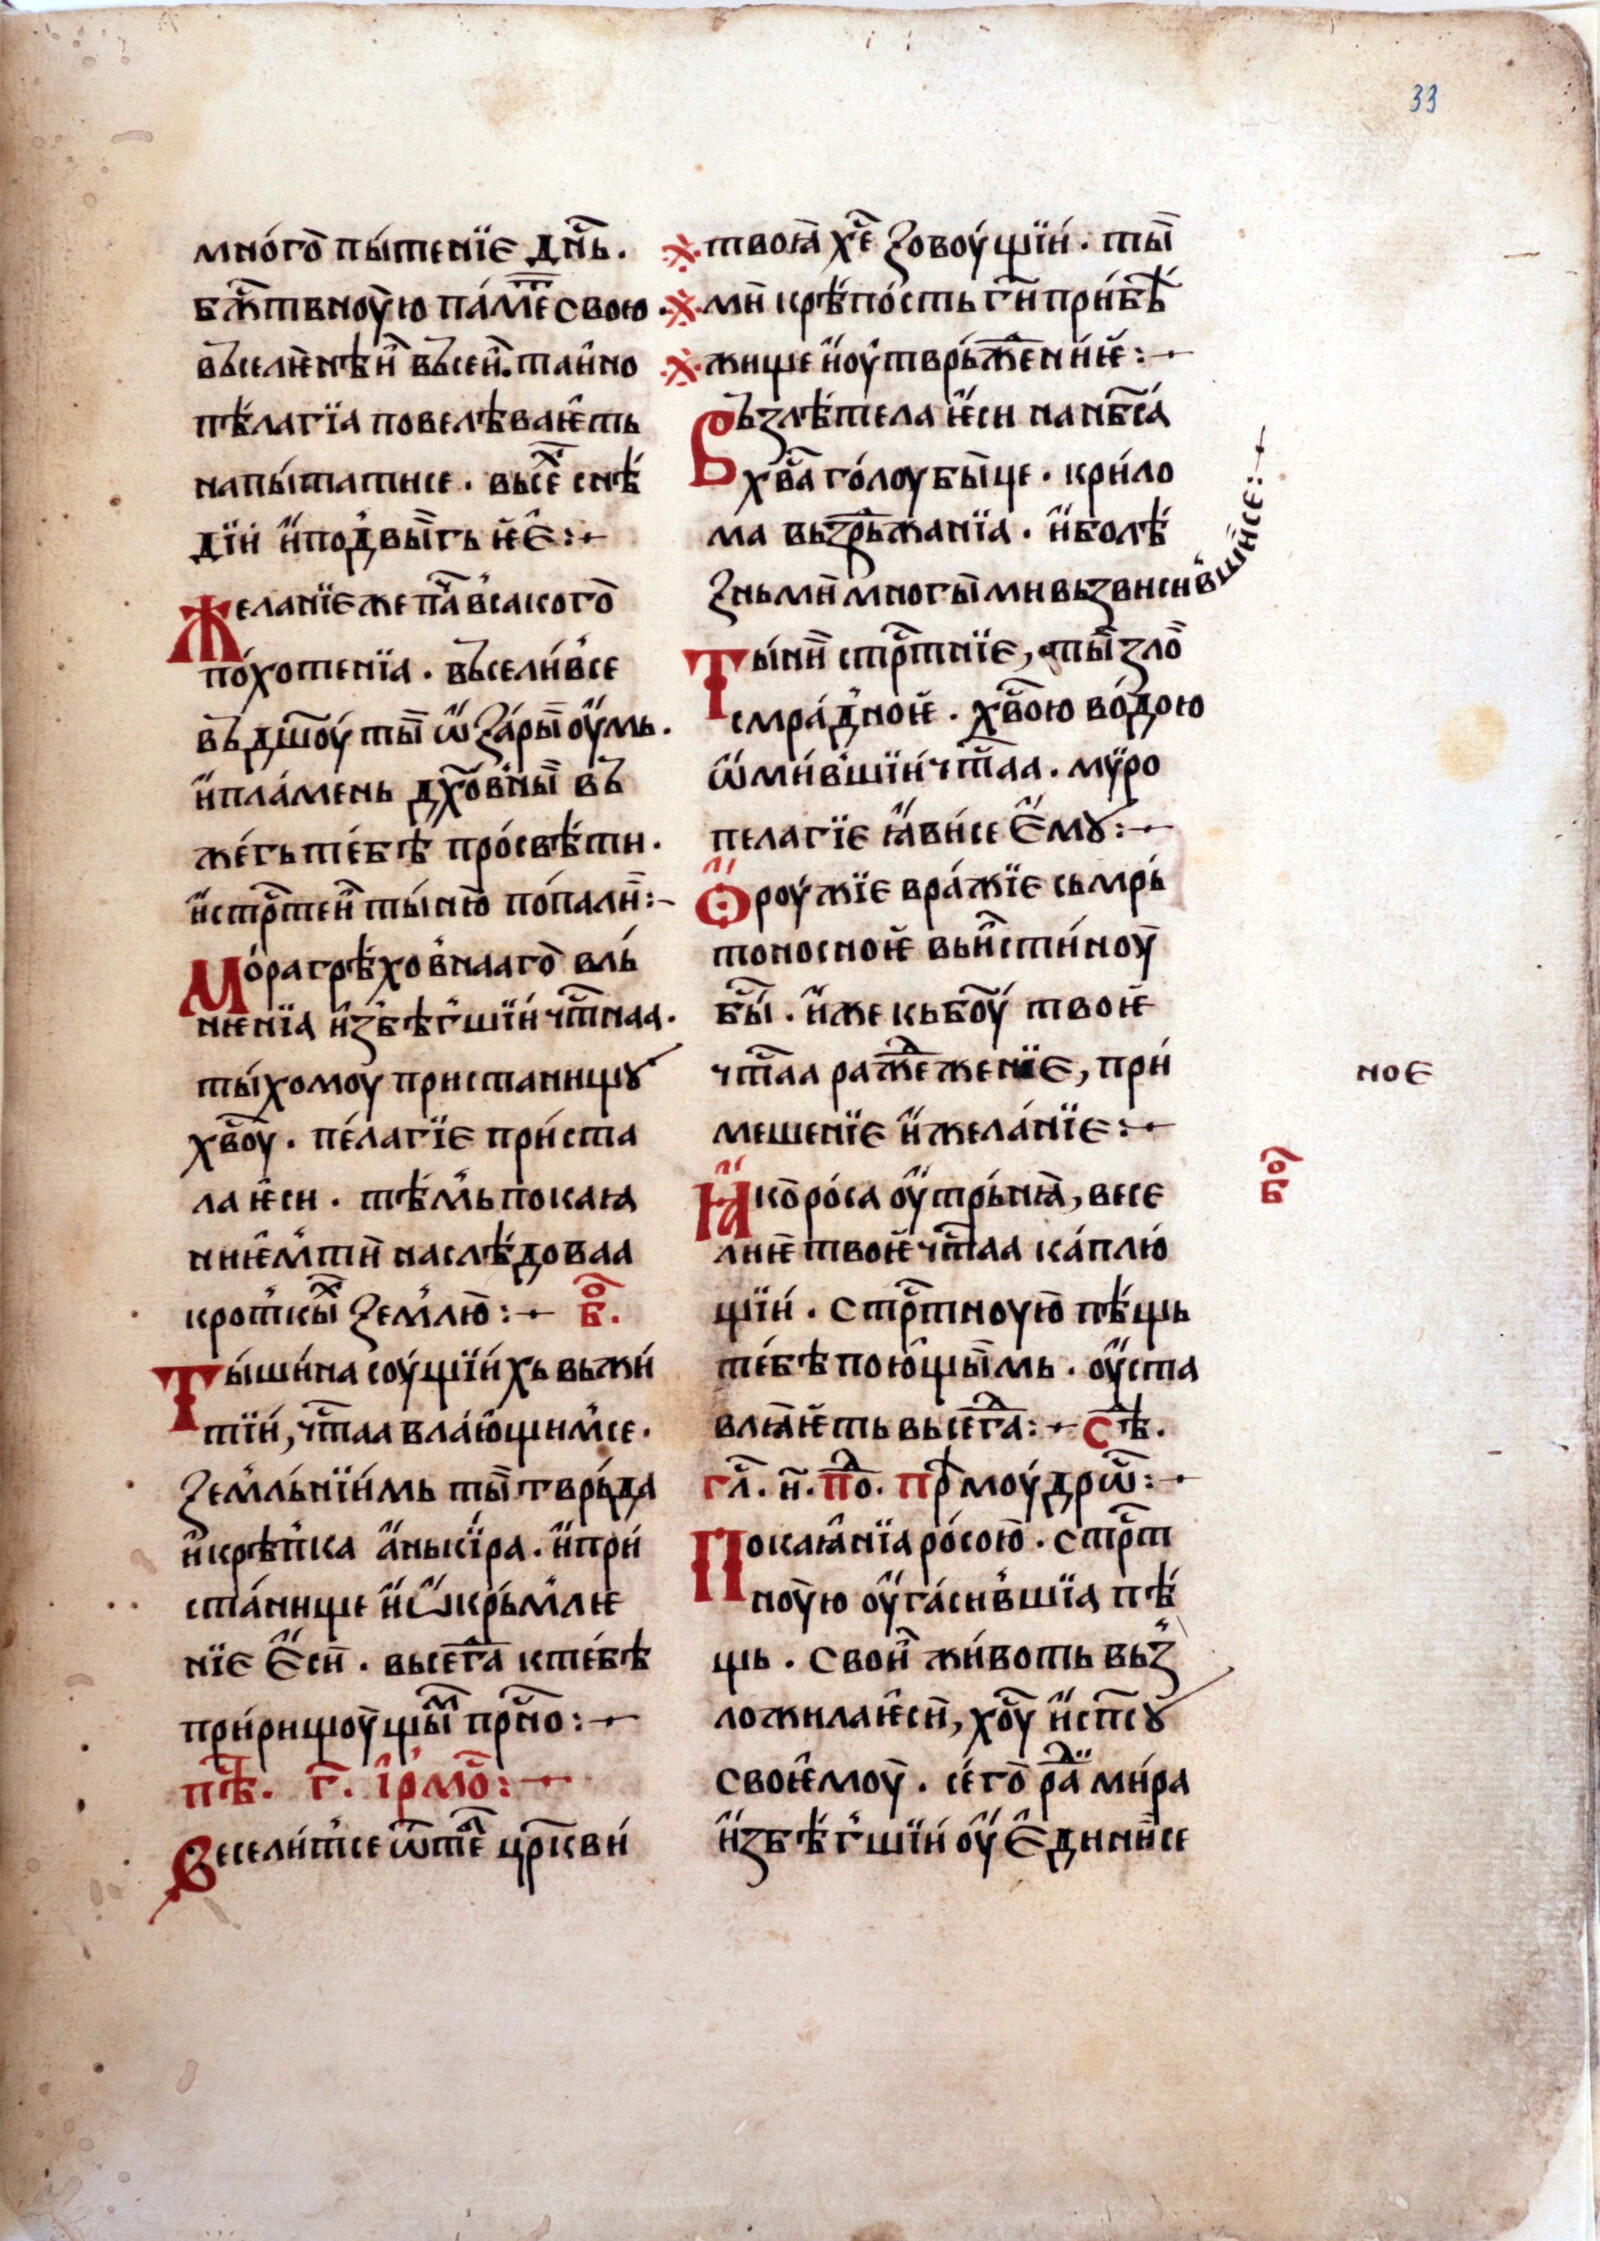 33
мно́го̄ пы́тенїѥ дн҃ь.
бж҃твноую па́ме҃ свою.
въселѥнѣи въсеи. таино
пѣлагїа повелѣваѥть
напы́татисе. вьсеⷯ снѣ́
дїи и҆подвы́гь ѥ҆ѥ:
Желанїе же п҃ла в҆сакого̄
по́хотенїа. въсели́в҆се
въ дш҃оу́ ты ѡ҆зары оу҆мь.
и҆пла́мень дх҃о́вны въ
же́гь те́бѣ про́свѣти.
и҆стр҇тен ты́ню по́пали:
Мо́ра грѣ́ховнааго̄ влъ́
нѥнїа и҆збѣ́г҆шїи чт҇наа.
ты́хомоу пристанищꙋ
хв҃оу. пе́лагїе при́ста
ла ѥси. тѣ́мь покаꙗ
ниѥмти наслѣ́довaа
крот҆кыⷯ земл҆ю: бо҃.
Ты́ши́на соу́щїи́хь вьжи́
тїи, чт҇аа влаю́щим҆се.
земл҆ьнїимь ты тврь́да
и҆крѣп҆ка а҆нькїра. и҆при́
ста́нище и҆ѡ҆крь́мл҆ѥ
нїе ѥ҆си. высегⷣа к те́бѣ
при́рищоу́щыⷨ пр҇но:
пѣⷭ. г҃. і҆рмо:
Веселит҆се ѡ҆ т҃е цр҃кви́
твоꙗ х҃е зовоу́щїи. ты
ми крѣпо́сть ги҃ при́бѣ
жище и҆оу́тврь́жени́ѥ:
Вьзлѣ́тела ѥси на нб҃са́
хв҃а го́лоубы́це. кри́ло
ма вьзрьжанїа. и҆болѣ́
зньми многы́ми вьзвисив҆шисе:
Ты́ни стр҇тнїѥ, ты́ зло
смра́д҆ноѥ. хв҃ою во́дою
ѡ҆ми́в҆шїи чт҇аа. мѵ̈ро
пелагїе ꙗ҆ви́се ѥ҆мꙋ:
Ѻ҆роу́жїѥ вра́жїѥ сьмрь́
тоносноѥ вьи҆сти́ноу
бы́. и҆же кьбг҃оу́ твоѥ
чт҇аа ражⷣеженїѥ, при́
мешенїѥ и҆жела́нїѥ:
ноѥ
Ꙗ҆ко̄ ро́са оу҆трь́нꙗ, весе
лиѥ твоѥ чт҇аа ка́плю́
бог҃
щїи. стр҇тноую пѣ́щь
те́бѣ пою҆щымь. оу҆ста
влꙗѥть вьсегⷣа: сѣⷣ.
гл҃. и҃. поⷣ. Прѣмоу́дрѡ:
Покаꙗнїа ро́сою. стр҇т
ноую оу҆га́сив҆шїа пѣ́
щь. свои жи́воть вьз
ложила ѥси, хоу҃ и҆сп҃сꙋ
своѥмоу. се́го̄ раⷣи ми́ра
и҆збѣ́г҆шїи оу҆ѥ҆дини́се